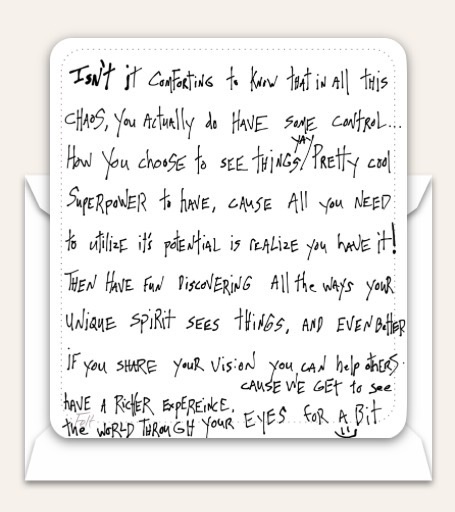 Isn't it comforting to know that in all this
CHAOS, you Actually do HAVE some control...
How You choose to see things/Pretty cool
YAY
SuperPOWER to have, cause All you NEED
to utilize it's potential is realize you have it!
THEN HAVE FUN DISCOVERING All the ways your
UNIQUE SPIRIT SEES THINGS, AND EVEN Better
IF you SHARE your VISION you can help others
CAUSE WE GET to see
HAVE A RICHER EXPEREINCE.
the WORLD THROUGH YOUR EYES FOR A Bit
Felt